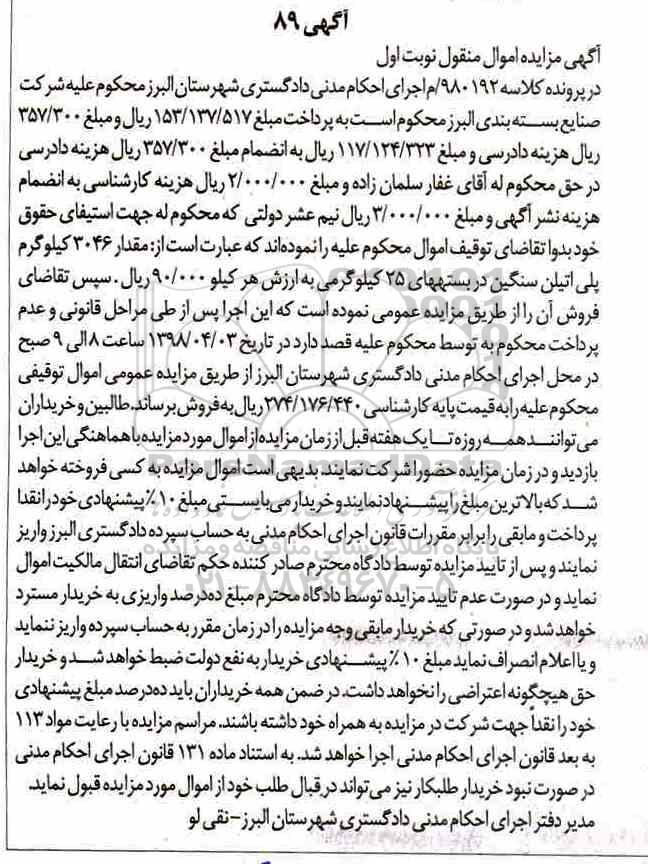 آگهی ۸۹
آگهی مزایده اموال منقول نوبت اول
در پرونده کلاسه ۹۸۰۱۹۲/م اجرای احکام مدنی دادگستری شهرستان البرز محکوم علیه شرکت
صنایع بسته بندی البرز محکوم است به پرداخت مبلغ ۱۵۳/۱۳۷/۵۱۷ ریال و مبلغ ۳۵۷/۳۰۰
ریال هزینه دادرسی و مبلغ ۱۱۷/۱۲۴/۳۲۳ ریال به انضمام مبلغ ۳۵۷/۳۰۰ ریال هزینه دادرسی
در حق محکوم له آقای غفار سلمان زاده و مبلغ ۲/۰۰۰/۰۰۰ ریال هزینه کارشناسی به انضمام
هزینه نشر آگهی و مبلغ ۳/۰۰۰/۰۰۰ ریال نیم عشر دولتی که محکوم له جهت استیفای حقوق
خود بدوا تقاضای توقیف اموال محکوم علیه را نموده‌اند که عبارت است از: مقدار ۳۰۴۶ کیلوگرم
پلی اتیلن سنگین در بسته‌های ۲۵ کیلوگرمی به ارزش هر کیلو ۹۰/۰۰۰ ریال . سپس تقاضای
فروش آن را از طریق مزایده عمومی نموده است که این اجرا پس از طی مراحل قانونی و عدم
پرداخت محکوم به توسط محکوم علیه قصد دارد در تاریخ ۱۳۹۸/۰۴/۰۳ ساعت ۸ الی ۹ صبح
در محل اجرای احکام مدنی دادگستری شهرستان البرز از طریق مزایده عمومی اموال توقیفی
محکوم علیه را به قیمت پایه کارشناسی ۲۷۴/۱۷۶/۴۴۰ ریال به فروش برساند. طالبین و خریداران
می‌توانند همه روزه تا یک هفته قبل از زمان مزایده از اموال مورد مزایده با هماهنگی این اجرا
بازدید و در زمان مزایده حضورا شرکت نمایند. بدیهی است اموال مزایده به کسی فروخته خواهد
شد که بالاترین مبلغ را پیشنهاد نمایند و خریدار می‌بایستی مبلغ ۱۰٪ پیشنهادی خود را نقدا
پرداخت و مابقی را برابر مقررات قانون اجرای احکام مدنی به حساب سپرده دادگستری البرز واریز
نمایند و پس از تایید مزایده توسط دادگاه محترم صادر کننده حکم تقاضای انتقال مالکیت اموال
نماید و در صورت عدم تایید مزایده توسط دادگاه محترم مبلغ ده‌درصد واریزی به خریدار مسترد
خواهد شد و در صورتی که خریدار مابقی وجه مزایده را در زمان مقرر به حساب سپرده واریز ننماید
و یا اعلام انصراف نماید مبلغ ۱۰٪ پیشنهادی خریدار به نفع دولت ضبط خواهد شد و خریدار
حق هیچگونه اعتراضی را نخواهد داشت. در ضمن همه خریداران باید ده‌درصد مبلغ پیشنهادی
خود را نقداً جهت شرکت در مزایده به همراه خود داشته باشند. مراسم مزایده با رعایت مواد ۱۱۳
به بعد قانون اجرای احکام مدنی اجرا خواهد شد. به استناد ماده ۱۳۱ قانون اجرای احکام مدنی
در صورت نبود خریدار طلبکار نیز می‌تواند در قبال طلب خود از اموال مورد مزایده قبول نماید.
مدیر دفتر اجرای احکام مدنی دادگستری شهرستان البرز – نقی لو